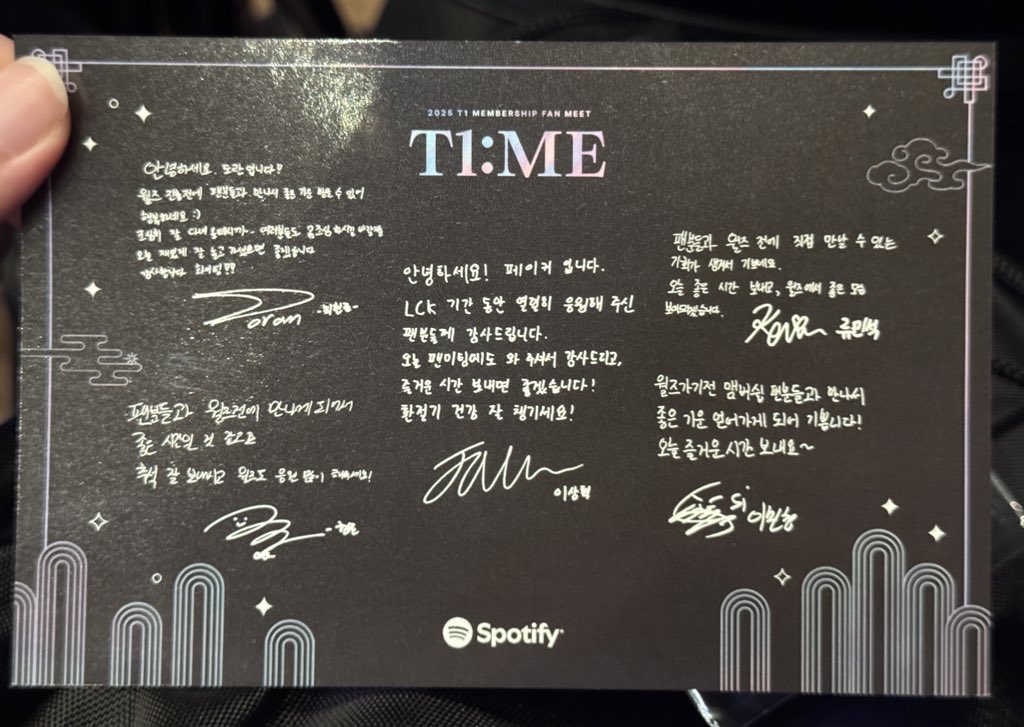 2025 T1 MEMBERSHIP FAN MEET
T1:ME
안녕하세요 도란입니다!
월즈 전에 팬분들과 만나서 좋은 기운 받을 수 있어
행복하네요 :)
조심히 잘 다녀올테니까~ 여러분들도
오늘 재밌게 잘 놀고 가셨으면 좋겠습니다
감사합니다
Doran -최현준-
팬분들과 월즈전에 만나게 되어
좋은 시간일 것 같고
추석 잘 보내시고 월즈도 응원 많이 해주세요!
안녕하세요! 페이커 입니다.
LCK 기간 동안 열렬히 응원해 주신
팬분들께 감사드립니다.
오늘 팬미팅에도 와 주셔서 감사드리고,
즐거운 시간 보내면 좋겠습니다!
환절기 건강 잘 챙기세요!
이상혁
팬분들과 월즈 전에 직접 만날 수 있는
기회가 생겨서 기쁘네요.
오늘 좋은 시간 보내고, 월즈에서 좋은 모습
보여드리겠습니다.
Keria 류민석
월즈가기전 멤버쉽 팬분들과 만나서
좋은 기운 얻어가게 되어 기쁩니다!
오늘 즐거운 시간 보내요~
이민형
Spotify